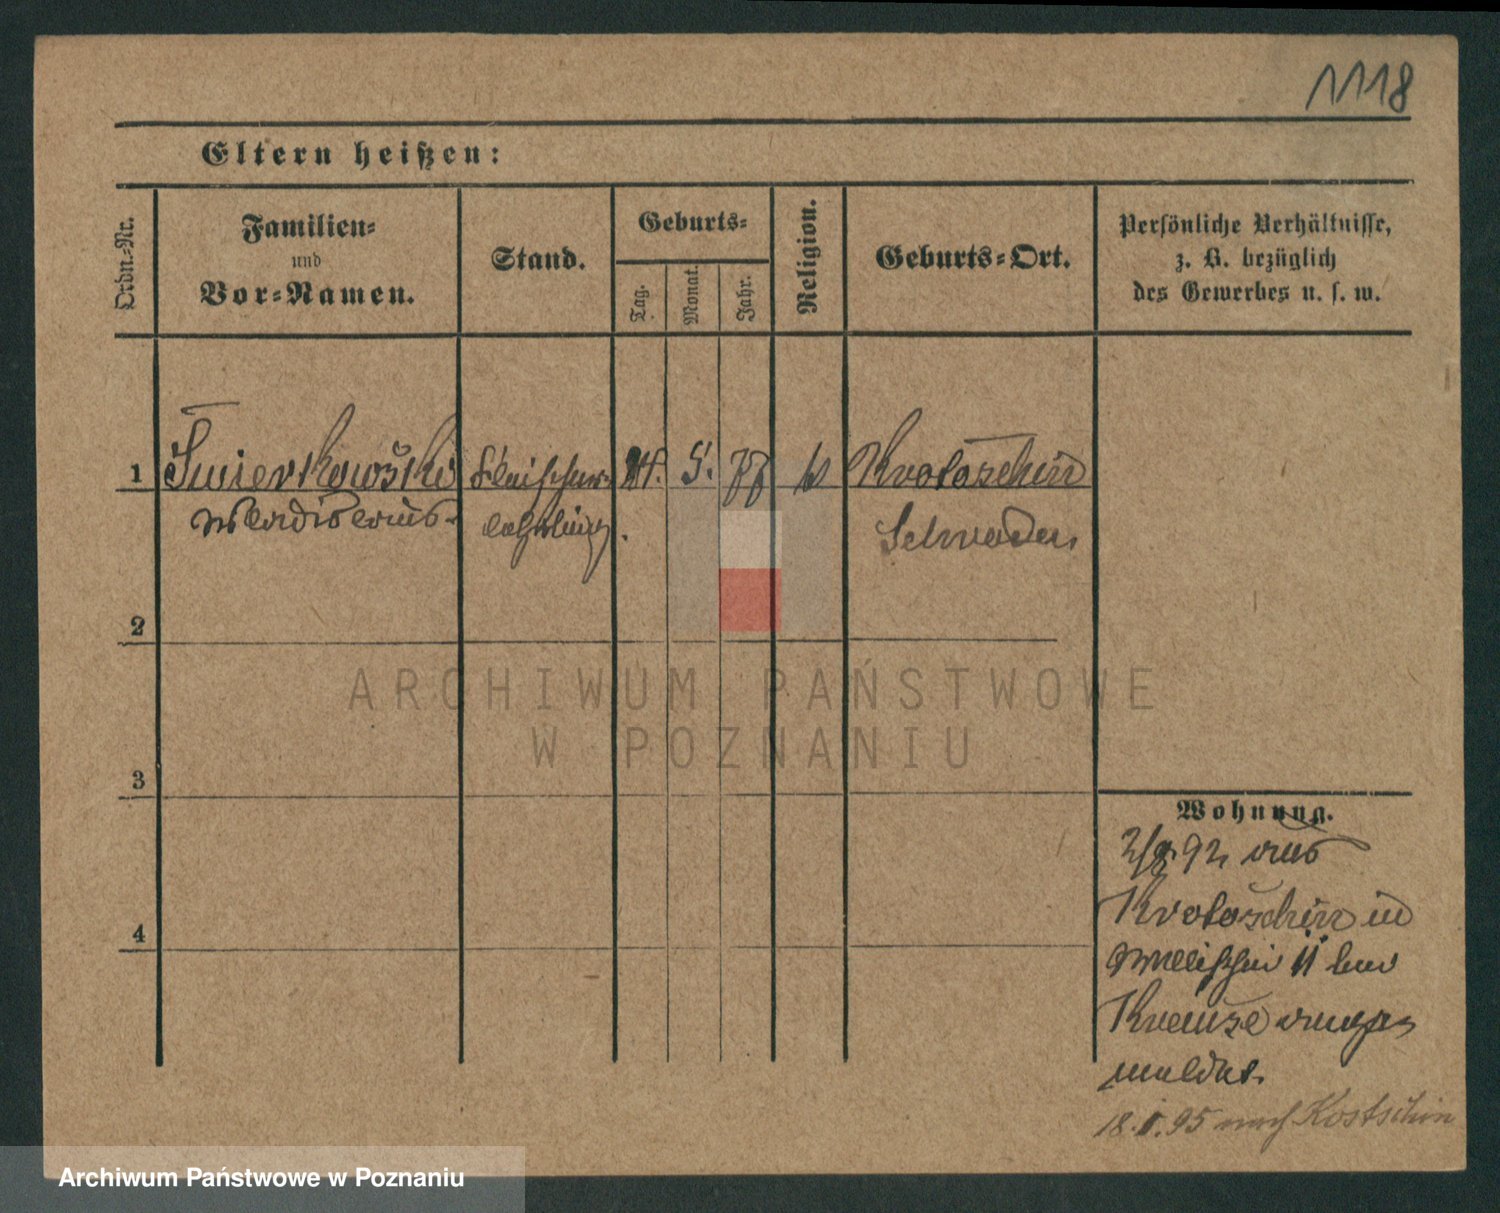 1118
Eltern heißen:
Ordn.-Nr.
Familien-
und
Vor-Namen.
Stand.
Geburts-
Tag.
Monat.
Jahr.
Religion.
Geburts-Ort.
Persönliche Verhältnisse,
z. B. bezüglich
des Gewerbes u. s. w.
1
Swierkowski
Wladislaus
Fleischer-
lehrling.
5.
77
Krotoschin
2
3
4
Wohnung.
92 aus
Krotoschin in
11 bei
Krause ange-
meldet.
18. 95 nach Kostschin
ARCHIWUM PAŃSTWOWE
W POZNANIU
Archiwum Państwowe w Poznaniu